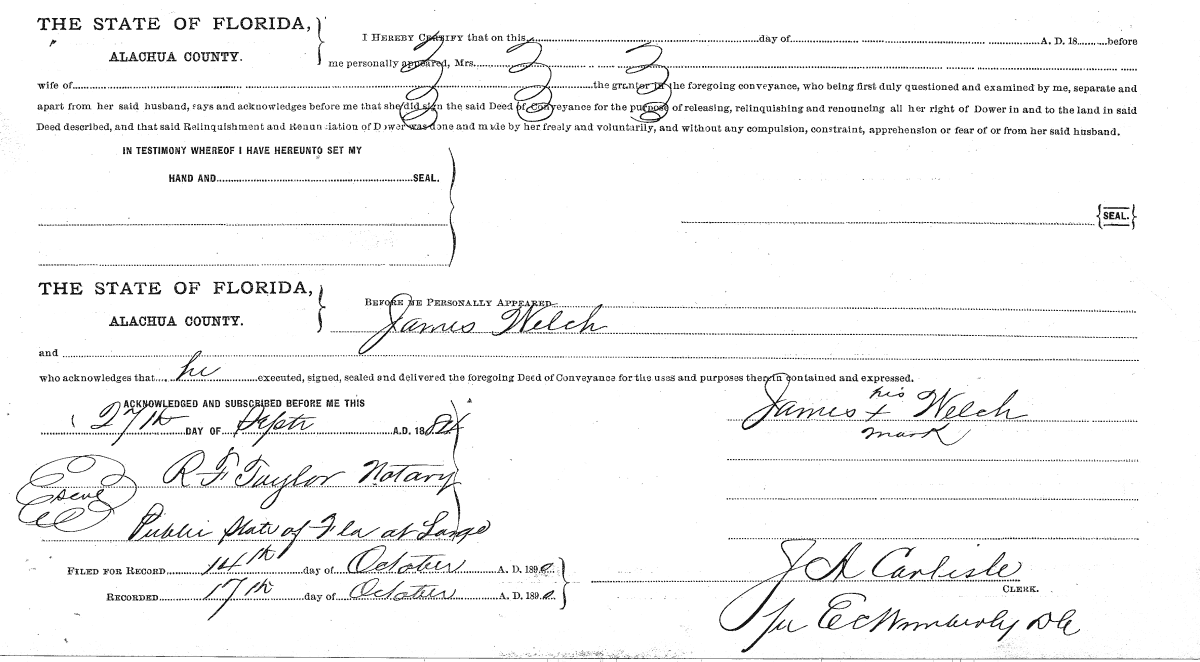 THE STATE OF FLORIDA,
ALACHUA COUNTY.
I HEREBY CERTIFY that on this day of A. D. 18 before
me personally appeared, Mrs.
wife of the grantor in the foregoing conveyance, who being first duly questioned and examined by me, separate and
apart from her said husband, says and acknowledges before me that she did sign the said Deed of Conveyance for the purpose of releasing, relinquishing and renouncing all her right of Dower in and to the land in said
Deed described, and that said Relinquishment and Renunciation of Dower was done and made by her freely and voluntarily, and without any compulsion, constraint, apprehension or fear of or from her said husband.
IN TESTIMONY WHEREOF I HAVE HEREUNTO SET MY
HAND AND SEAL.
SEAL.
THE STATE OF FLORIDA,
ALACHUA COUNTY.
BEFORE ME PERSONALLY APPEARED
James Welch
and
who acknowledges that he executed, signed, sealed and delivered the foregoing Deed of Conveyance for the uses and purposes therein contained and expressed.
ACKNOWLEDGED AND SUBSCRIBED BEFORE ME THIS
27th DAY OF Septr A.D. 18
his
James + Welch
mark
R F Taylor Notary
Public State of Fla at Large
FILED FOR RECORD 14th day of October A. D. 1890
RECORDED 17th day of October A. D. 1890
J A Carlisle
CLERK.
per E C Wimberly DC